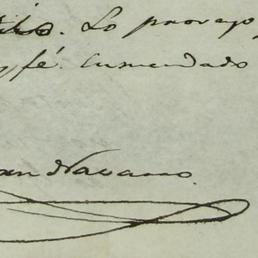 Lo proveyó
y fé. Enmendado
an Navarro.